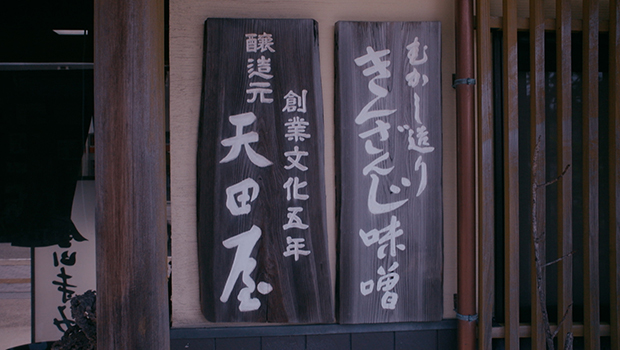 むかし造り
きんざんじ味噌
創業文化五年
醸造元
天田屋